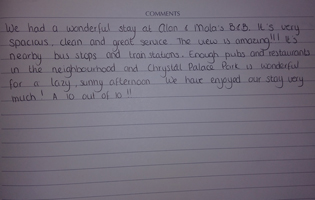 COMMENTS
We had a wonderful stay at Alan & Mala's B&B. It's very
spacious, clean and great service. The view is amazing!!! It's
nearby bus stops and train stations. Enough pubs and restaurants
in the neighbourhood and Chrystal Palace Park is wonderful
for a lazy, sunny afternoon. We have enjoyed our stay very
much! A 10 out of 10!!